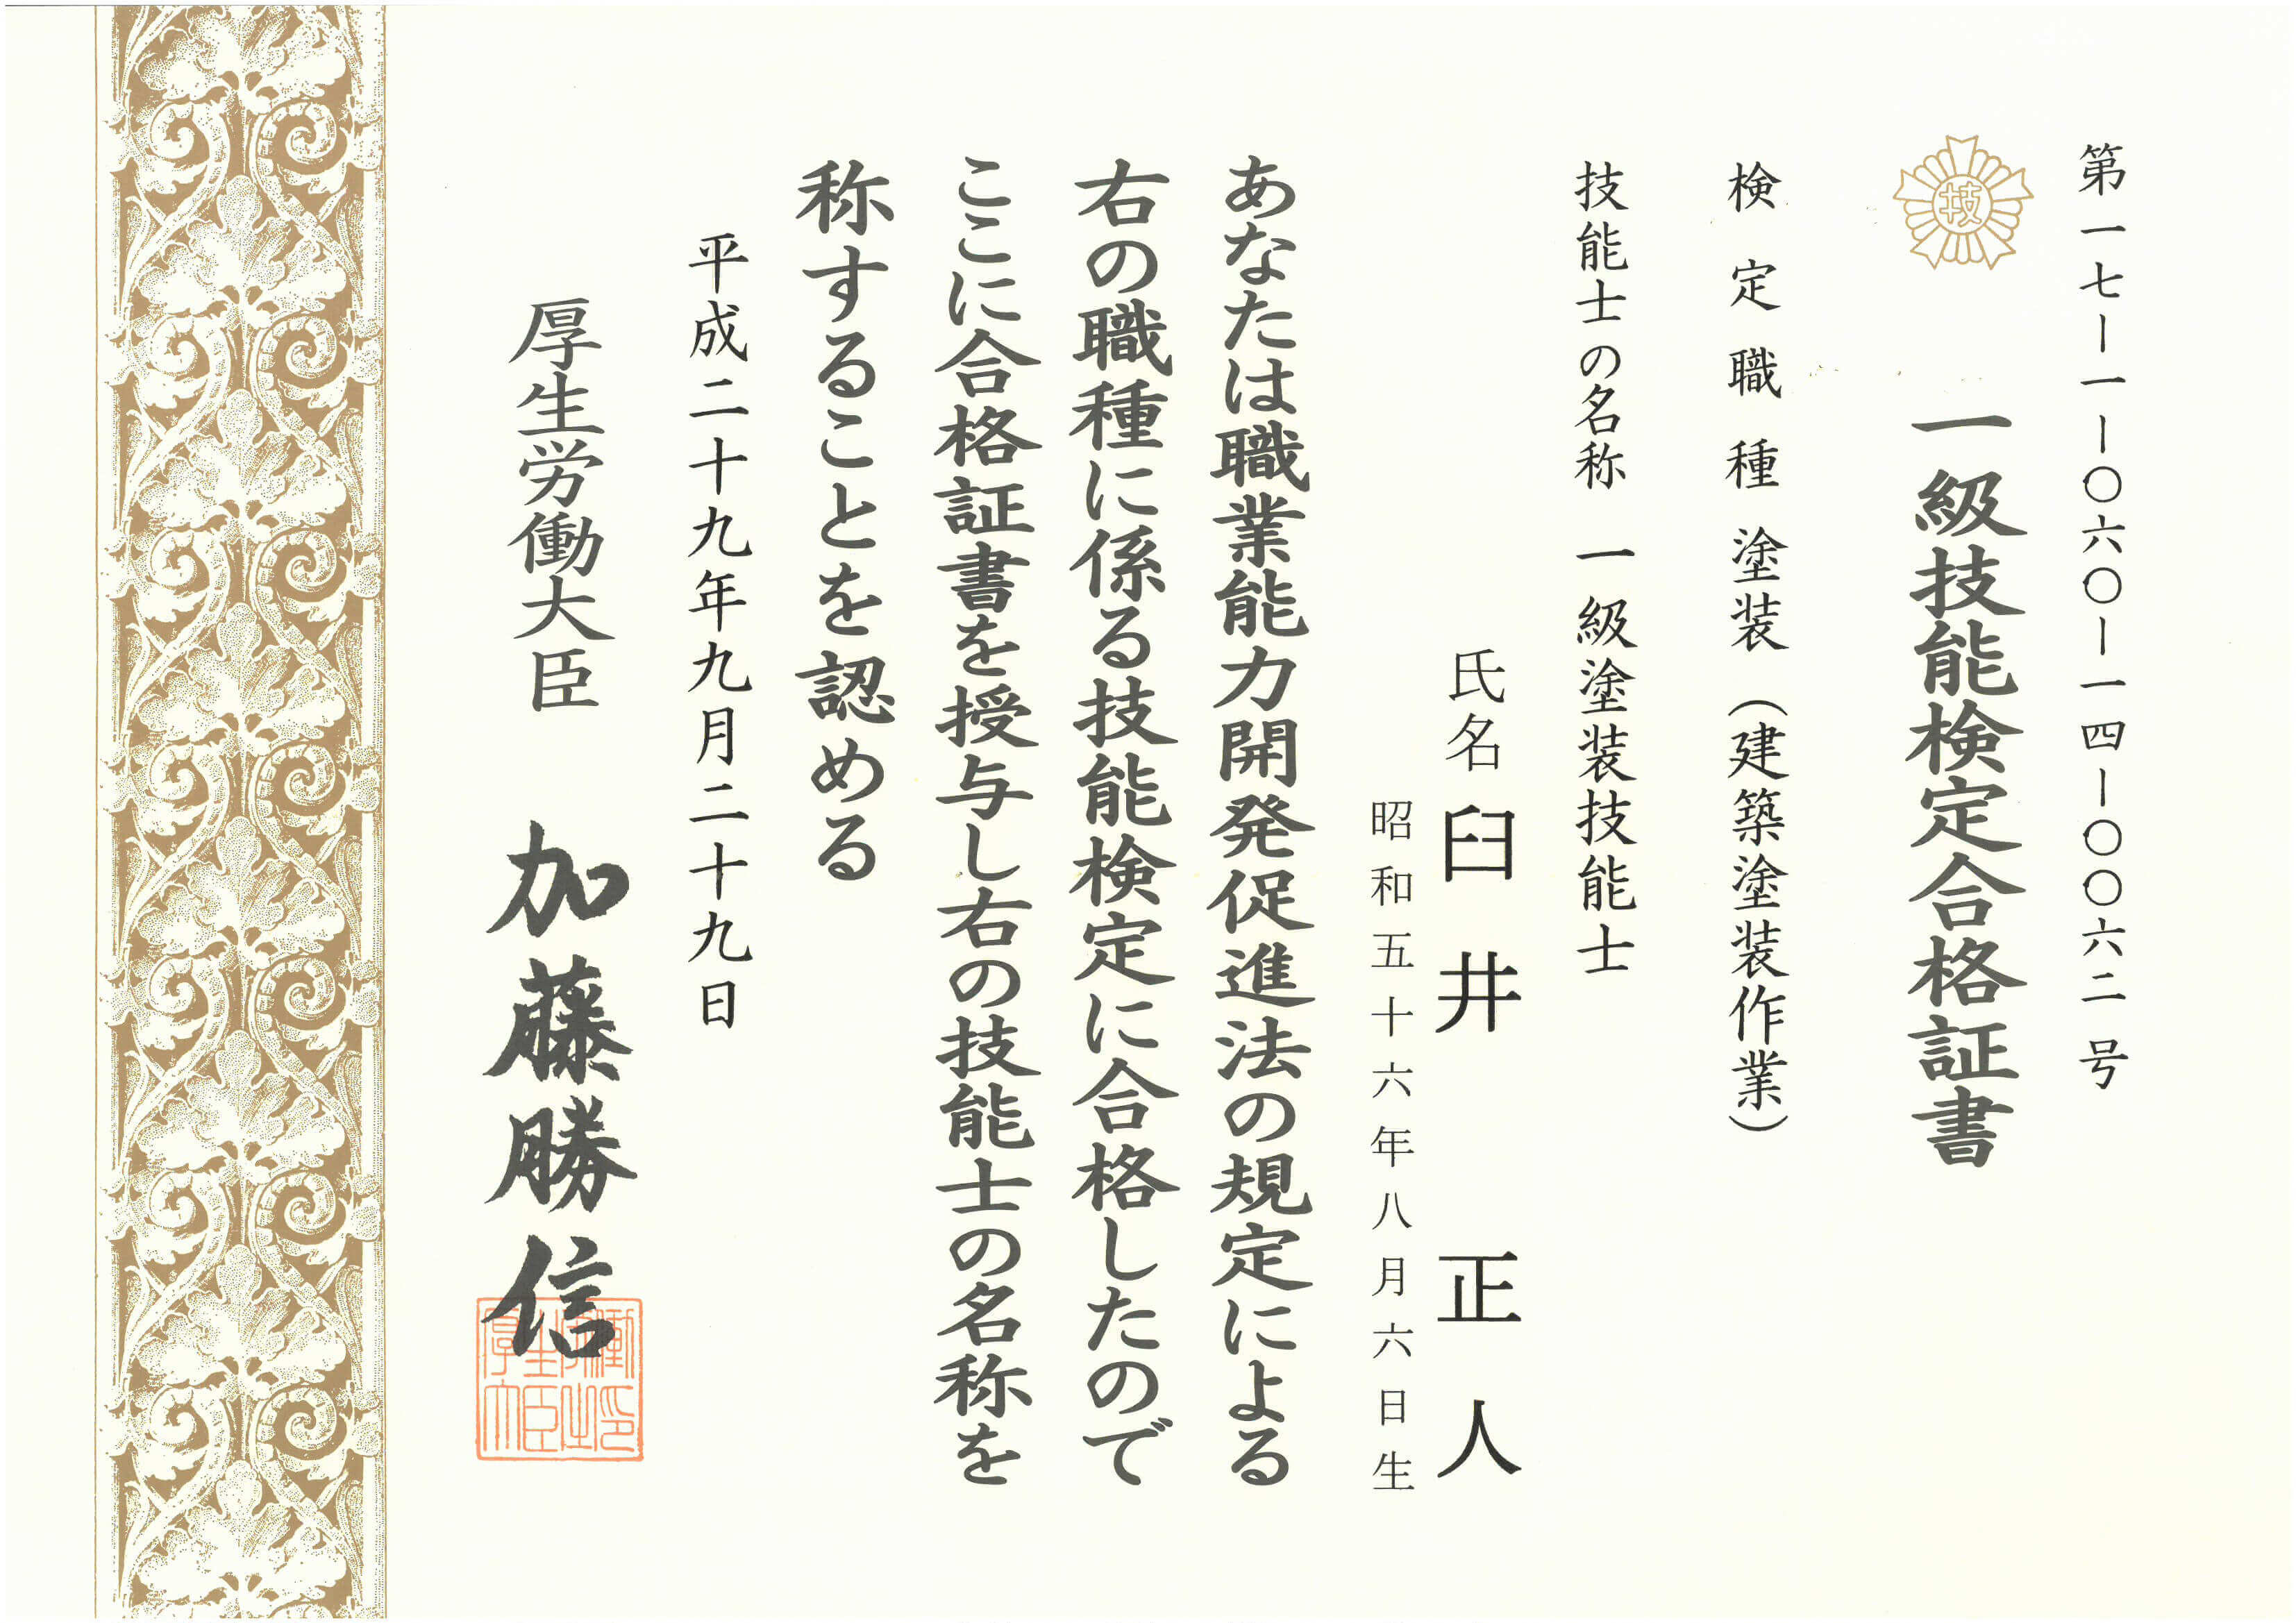 第一七ー一ー〇六〇ー一四ー〇〇六二号
技
一級技能検定合格証書
検定職種 塗装（建築塗装作業）
技能士の名称 一級塗装技能士
氏名 臼井 正人
昭和五十六年八月六日生
あなたは職業能力開発促進法の規定による
右の職種に係る技能検定に合格したので
ここに合格証書を授与し右の技能士の名称を
称することを認める
平成二十九年九月二十九日
厚生労働大臣 加藤勝信
厚生労働大臣之印